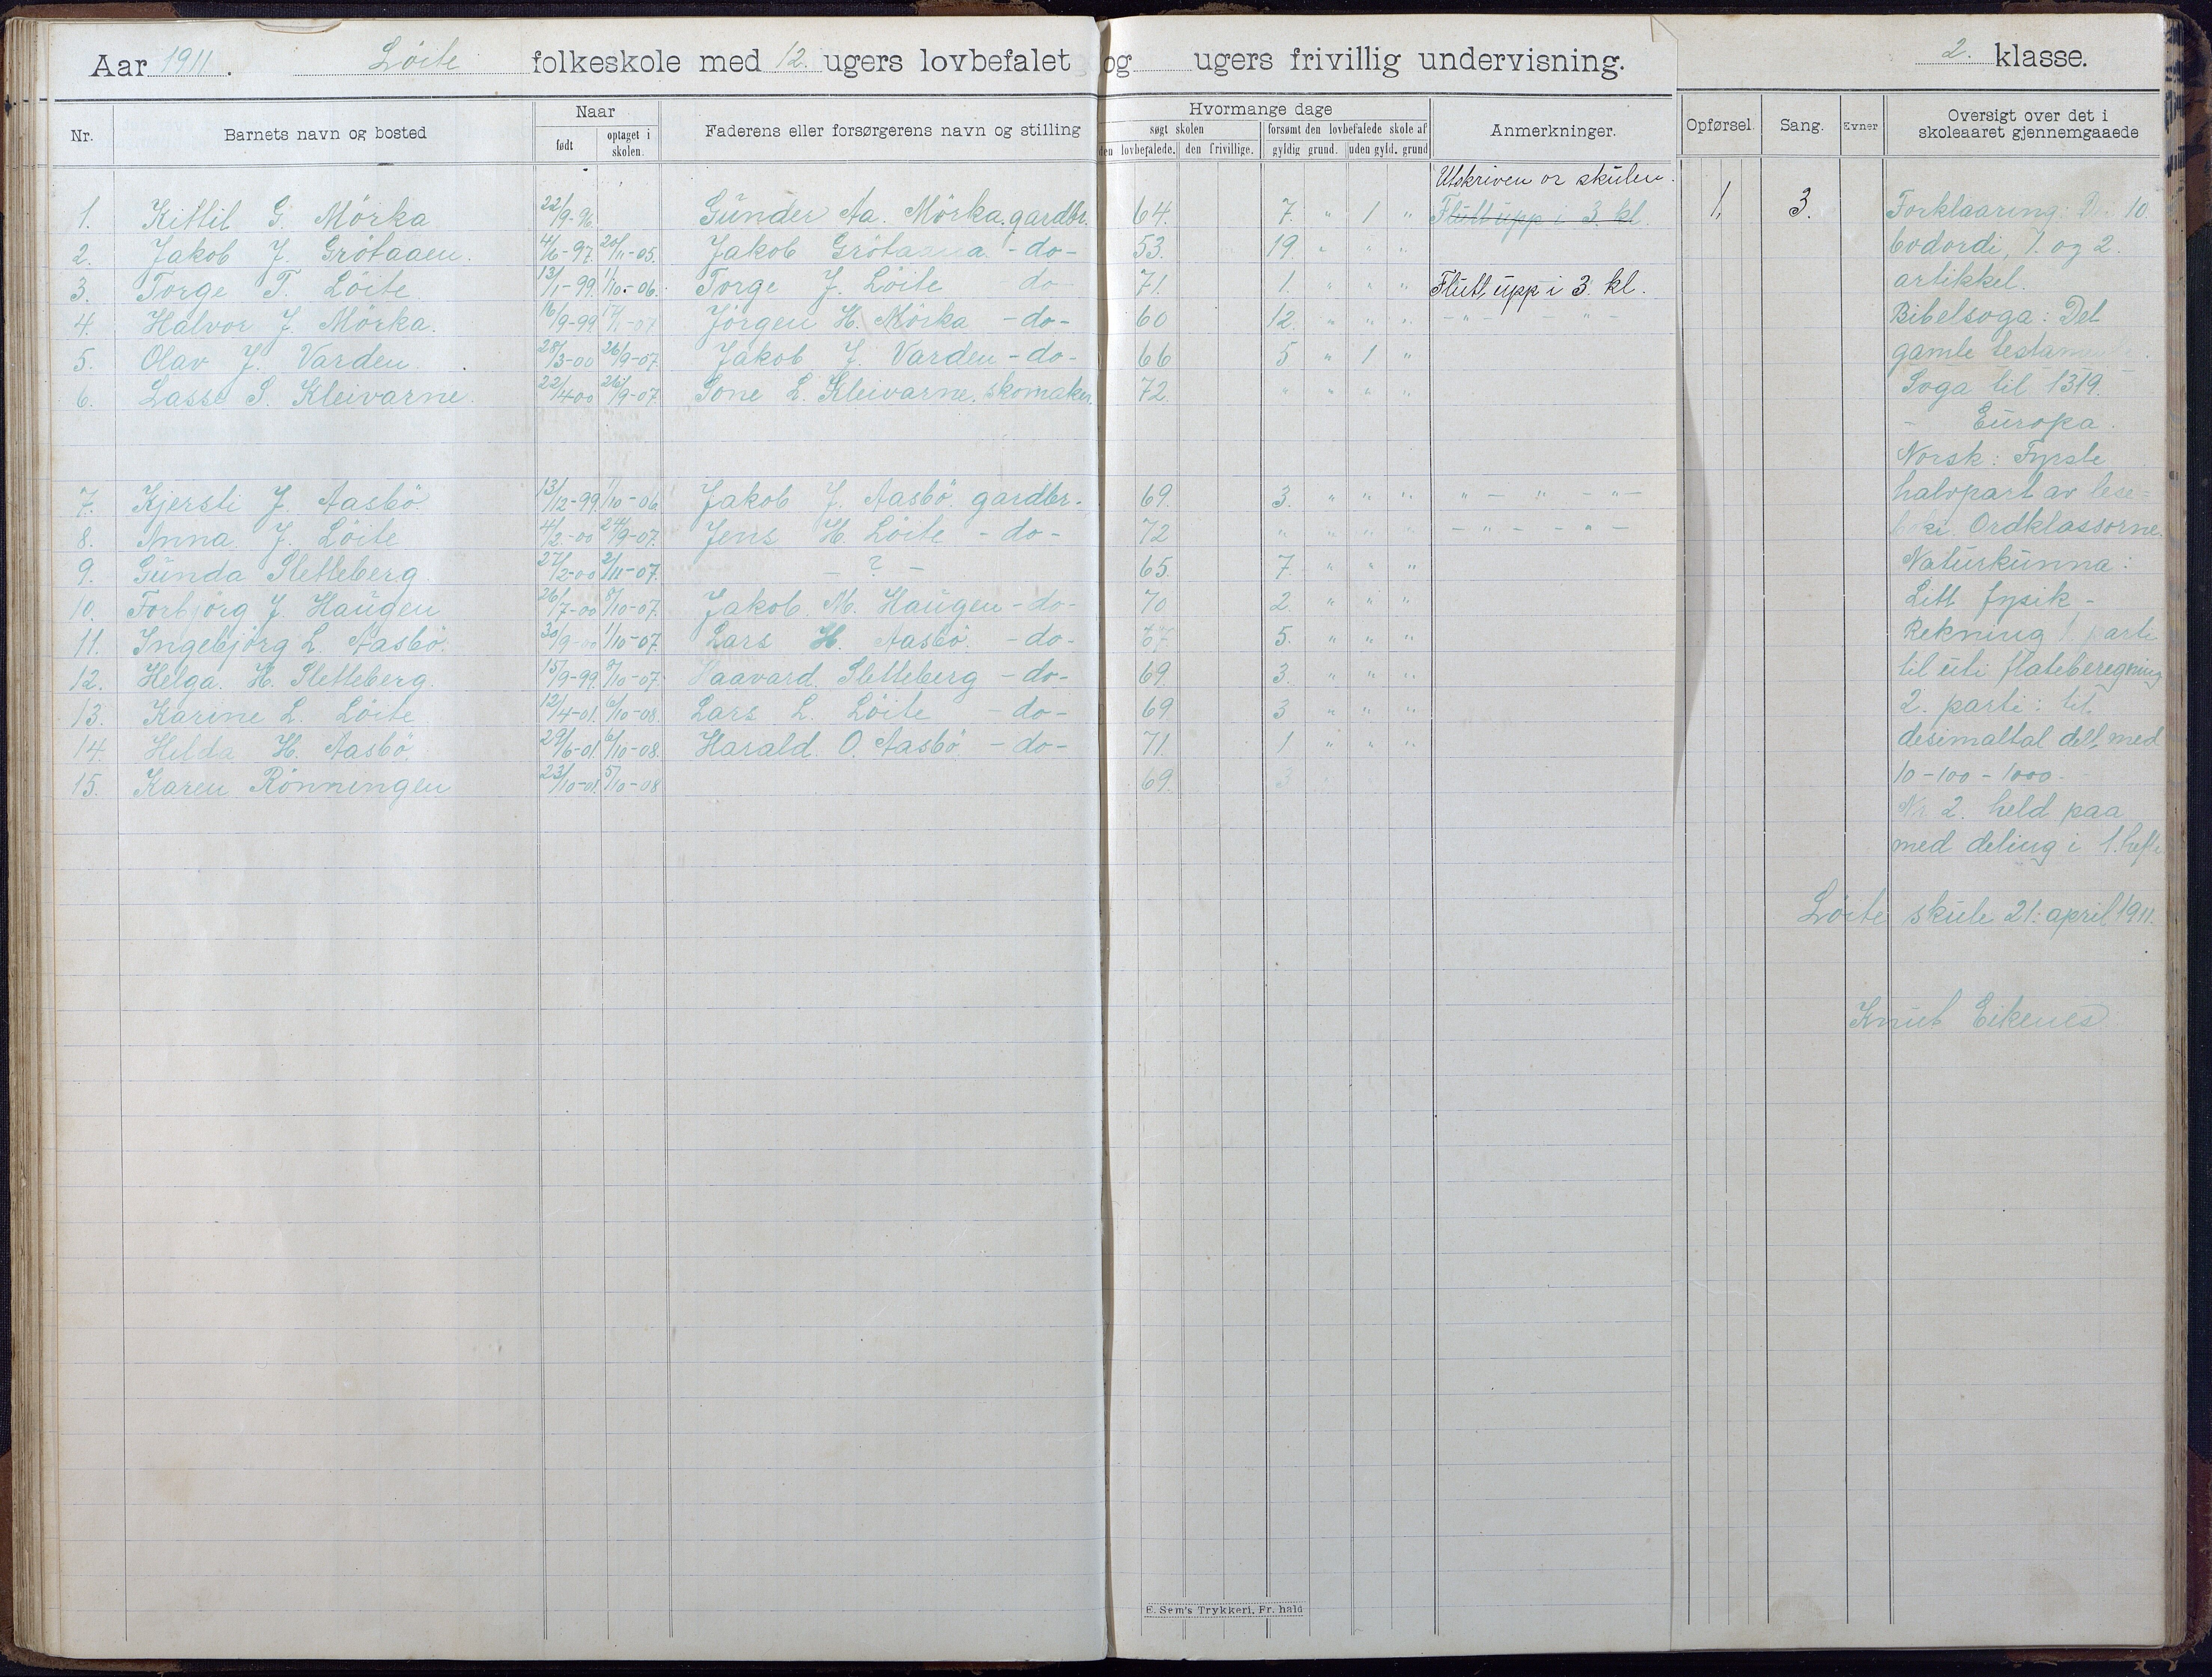 Aar 1911. Löite folkeskole med 12. ugers lovbefalet og ugers frivillig undervisning. 2. klasse.
Nr. Barnets navn og bosted Naar født optaget i skolen. Faderens eller forsørgerens navn og stilling Hvormange dage søgt skolen den lovbefalede. den frivillige. forsømt den lovbefalede skole af gyldig grund. uden gyld. grund Anmerkninger. Opførsel. Sang. Evner Oversigt over det i skoleaaret gjennemgaaede
Utskriven or skulen.
1. Kittil G. Mörka 22/9-96. Günder Aa. Mörka. gardbr. 64. 7. " 1 " Flutt upp i 3. kl. 1, 3. Forklaaring 10
2. Jakob J. Grötaaen. 4/6-97. 20/11-05. Jakob Grötaaen -do- 53. 19. " " " bodordi, 1. og 2.
3. Torge T. Löite 13/1-99. 1/10-06. Torge J. Löite do 71. 1. " " " Flutt upp i 3. kl. artikkel.
4. Halvor J. Mörka. 16/9-99 Jörgen H. Mörka -do- 60 12. " " " - " - - " - Bibelsoga: Det
5. Olav J. Varden. 28/3-00 26/9-07. Jakob J. Varden -do- 66 5 " 1 " gamle testam
6. Lasse S. Kleivarne. 22/4 00 26/9-07 Sone L. Kleivarne. skomaker. 72. " " " " Soga til 1319.
- Europa.
Norsk: Fyrste
7. Kjersti J. Aasbö 13/12-99. 1/10-06. Jakob J. Aasbö gardbr. 69. 3. " " " " - " - " - halvpart av lese-
8. Anna J. Löite 4/2-00 24/9-07. Jens H. Löite -do- 72 " " " " - " - - " - Ordklassorne.
9. Günda Sletteberg. 27/2-00 2/11-07. - ? - 65. 7. " " " Naturkunna:
10. Torbjörg J. Haugen 26/7-00 8/10-07. Jakob M. Haugen -do- 70 2. " " " Litt fysik -
11. Ingebjörg L. Aasbö. 30/9-00 1/10-07. Lars H. Aasbö. -do- 67 5. " " " Rekning 1. parti
12. Helga H. Sletteberg. 15/9-99. 8/10-07. Haavard Sletteberg -do- 69. 3. " " " til uti flateberegning
13. Karine L. Löite 12/4-01. 6/10-08. Lars L. Löite -do- 69 3 " " " 2. parti: til
14. Hilda H. Aasbö. 29/6-01. 6/10-08. Harald O. Aasbö -do- 71. 1 " " " desimaltal delt med
15. Karen Rönningen 23/10-01. 5/10-08 69. 3 10-100-1000.
Nr 2. held paa
med deling i 1. hefte
Löite skule 21: april 1911.
Knut Eikenes
E. Sem's Trykkeri, Fr. hald